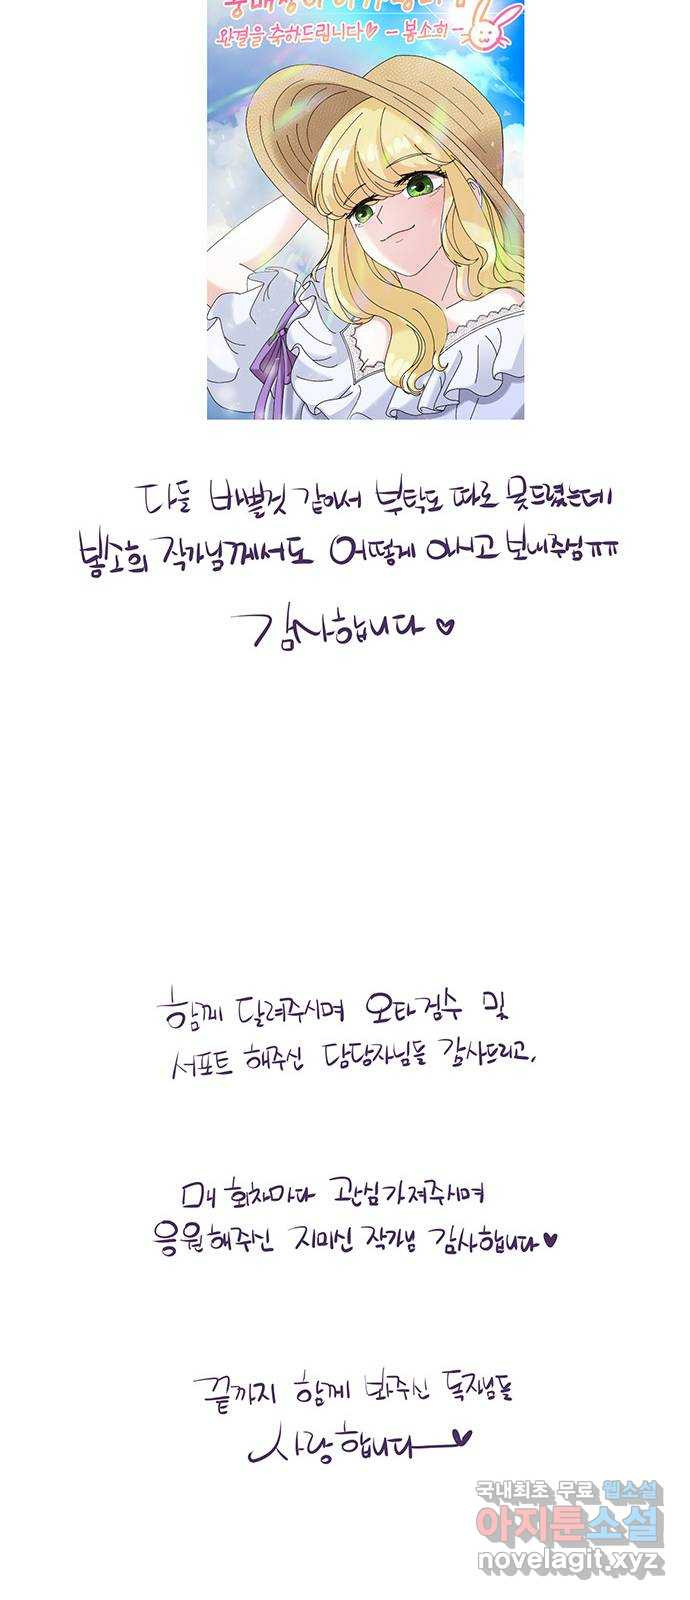 완결을 축하드립니다♡ - 봄소희 -
다들 바쁠것 같아서 부탁도 따로 못드렸는데
봄소희 작가님께서도 어떻게 아시고 보내주심ㅠㅠ
감사합니다♡
함께 달려주시며 오타검수 및
서포트 해주신 담당자님들 감사드리고,
매 회차마다 관심가져주시며
응원해주신 지미신 작가님 감사합니다♥
끝까지 함께 봐주신 독자님들
사랑합니다♥
국내최초 무료 웹소설
아지툰소설
novelagit.xyz